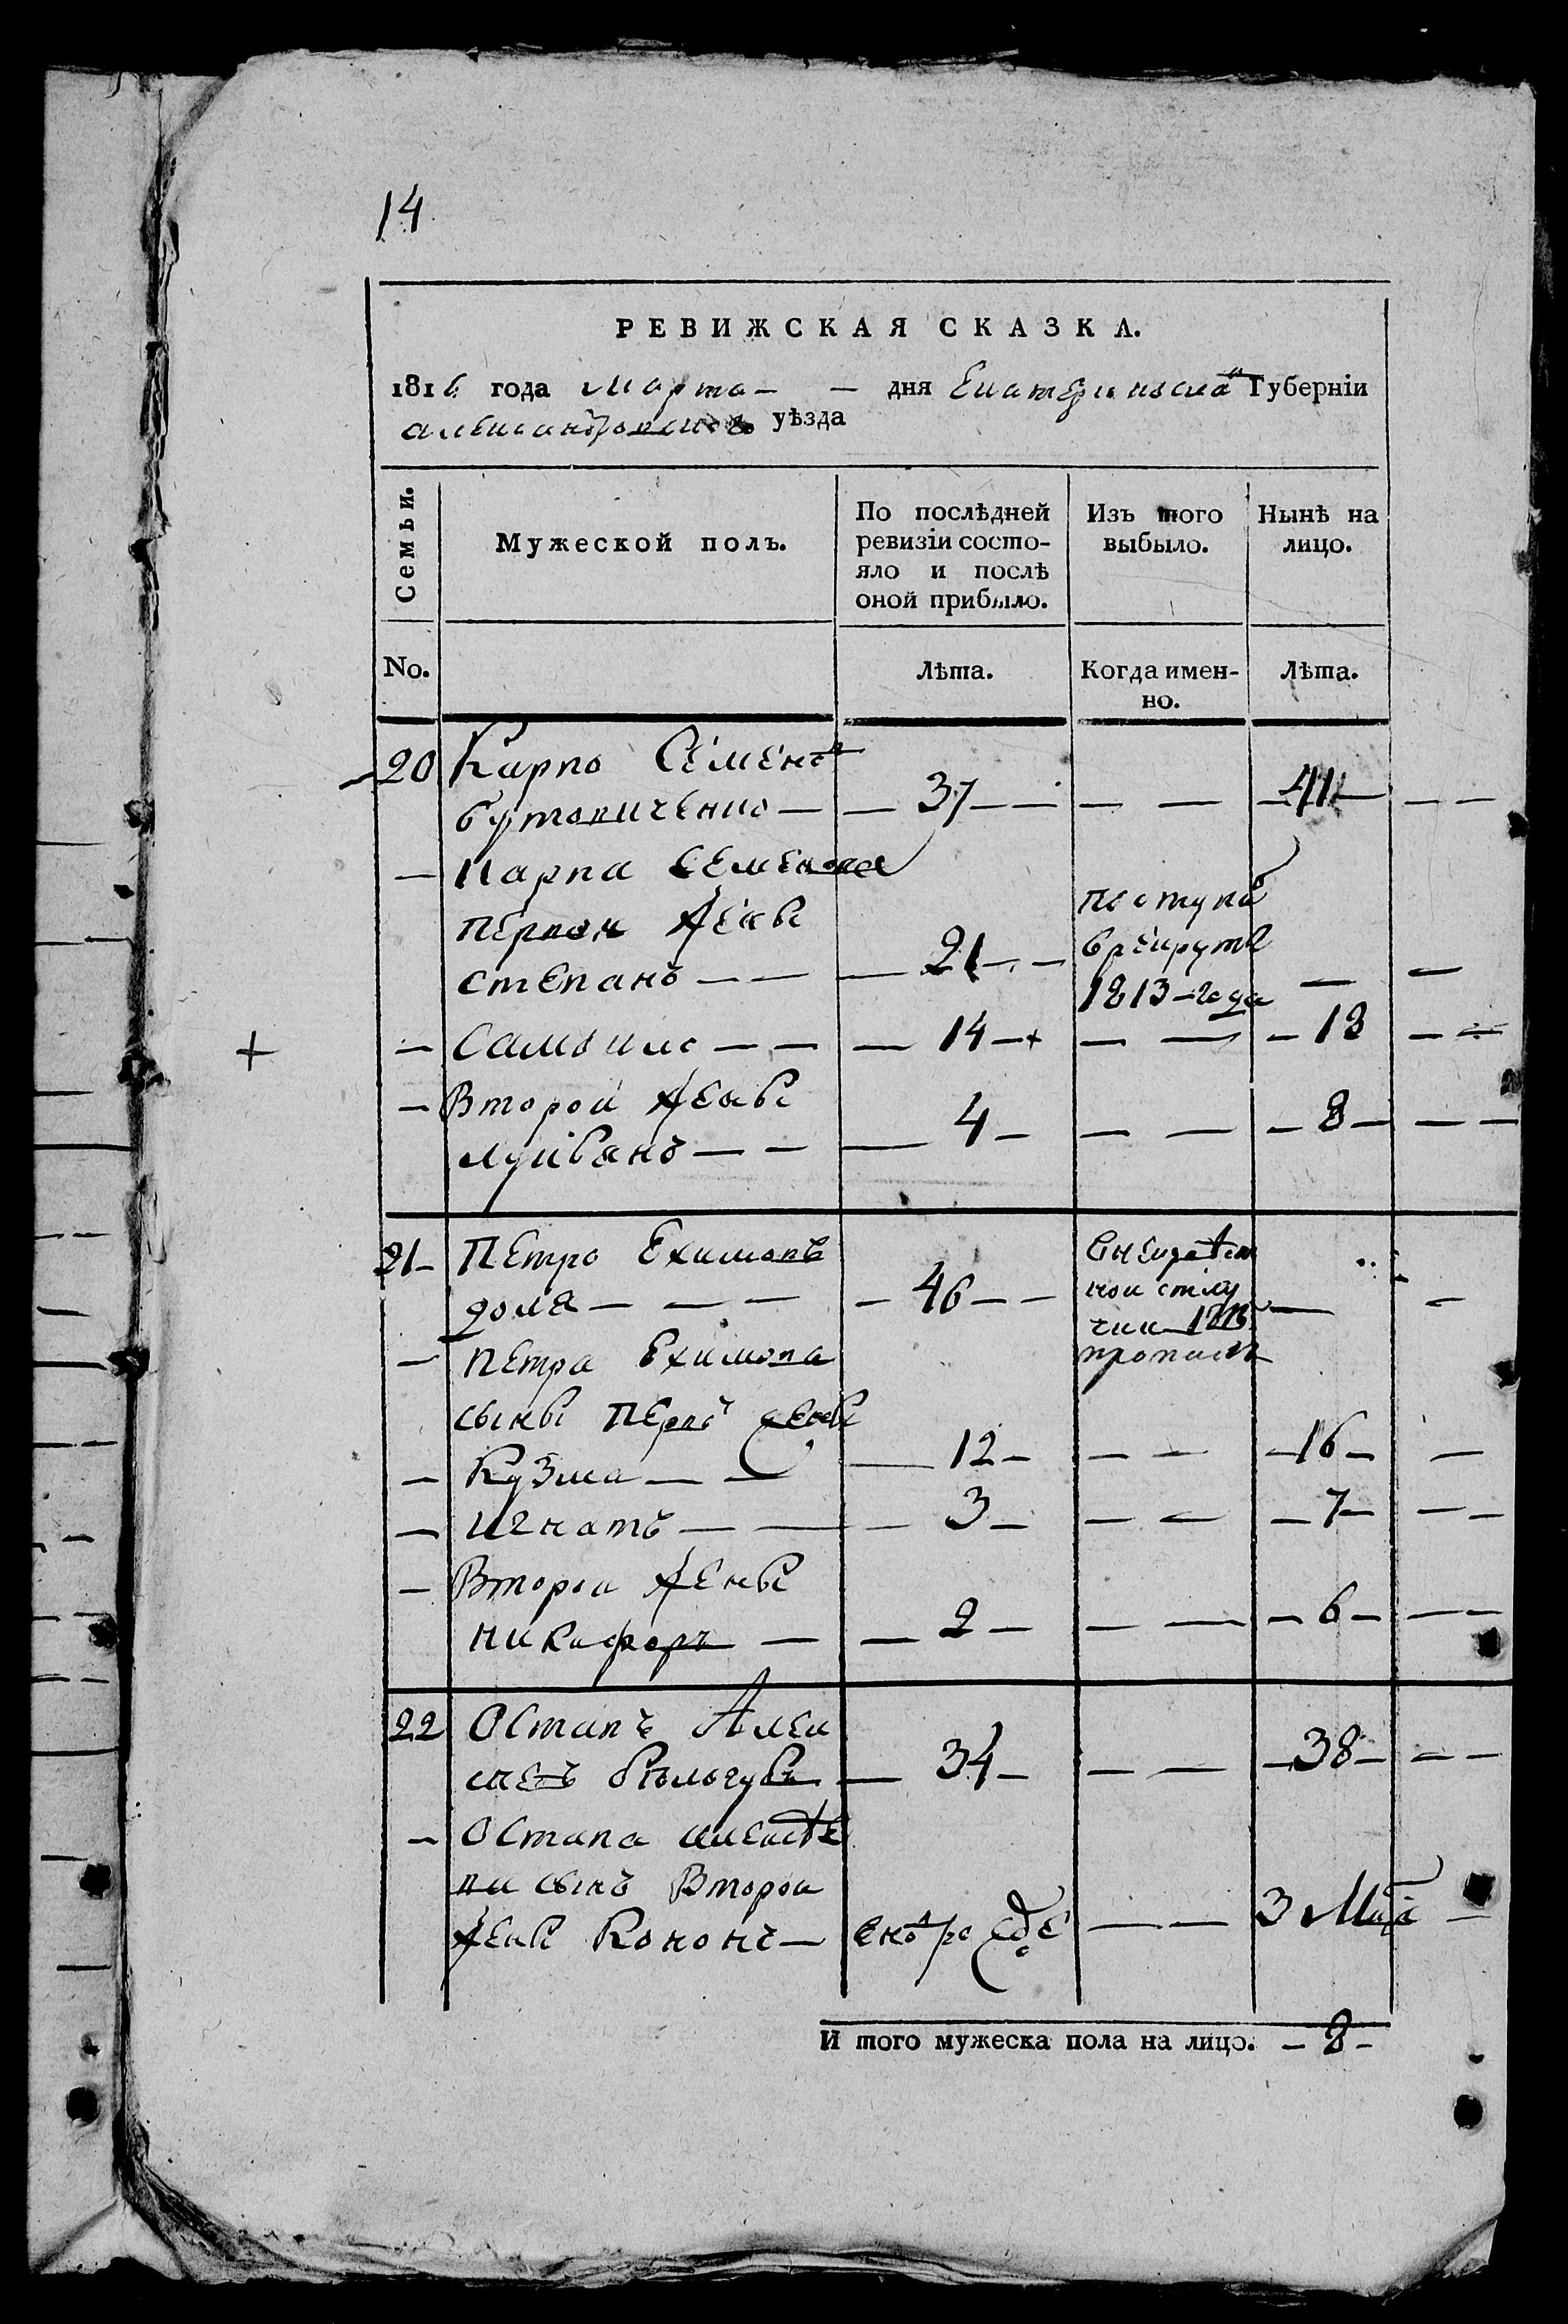 14
РЕВИЖСКАЯ СКАЗКА.
1816 года Марта — — дня Екатеринослав Губерніи
александровского уѣзда
Семьи. Мужеской полъ. По послѣдней ревизіи состояло и послѣ оной прибыло. Изъ того выбыло. Нынѣ на лицо.
No. Лѣта. Когда именно. Лѣта.
20 Карпо Семенов
бутовиченко — — 37 — — — — — 41 — — —
— Карпа Семенова
первой жены поступил
степанъ — — — 21 — — в рекруты
1813 — года — —
+ — Самойло — — — 14 — + — — — 18 — —
— Второй жены
лукіянъ — — — 4 — — — — 8 — — —
21 — Петро Ехимовъ
доля — — — — 46 — — — —
1813
— петра Ехимова пропалъ
сыны Перво жены
— Кузма — — — 12 — — — — 16 — —
— игнатъ — — — 3 — — — — 7 — — —
— Второй жены
никифоръ — — 2 — — — — 6 — — —
22 Остапъ Алек
сѣевъ бѣлогубъ — 34 — — — — 38 — — —
— Остапа алексѣе
ва сынъ Второй
жены Кононъ — — — 3 Мца —
И того мужеска пола на лицо. — 8 —